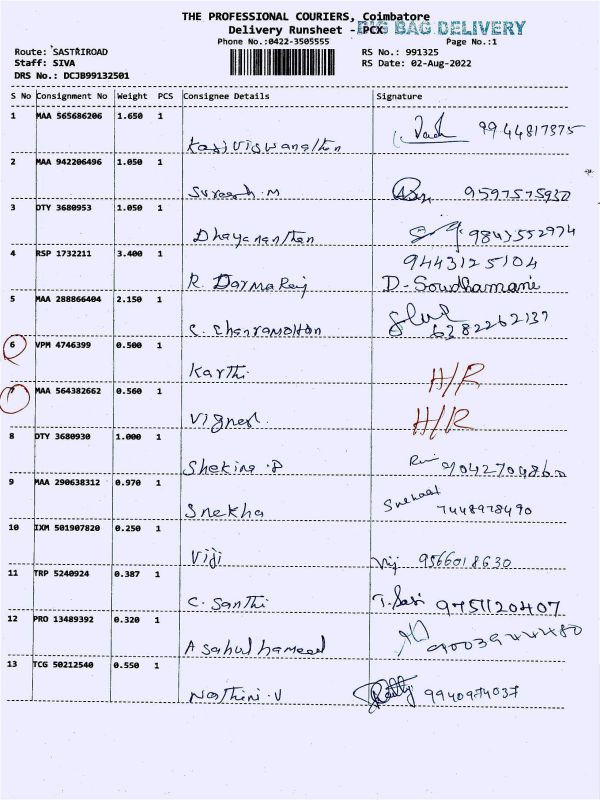 THE PROFESSIONAL COURIERS, Coimbatore
Delivery Runsheet - PCX BIG BAG DELIVERY
Phone No.:0422-3505555 Page No.:1
Route: SASTRIROAD RS No.: 991325
Staff: SIVA RS Date: 02-Aug-2022
DRS No.: DCJB99132501
S No Consignment No Weight PCS Consignee Details Signature
1 MAA 565686206 1.650 1
Kasi Viswanathan 9944817375
2 MAA 942206496 1.050 1
Suresh.M 9597575937
3 DTY 3680953 1.050 1
Dhayananthan 9843552974
4 RSP 1732211 3.400 1 9443125104
R. DarmaRaj D-Soudhamani
5 MAA 288866404 2.150 1
6382262137
6 VPM 4746399 0.500 1
Karthi H/R
7 MAA 564382662 0.560 1
Vignesh H/R
8 DTY 3680930 1.000 1
Shekina.P 9042704860
9 MAA 290638312 0.970 1
Snekha 7448978490
10 IXM 501907820 0.250 1
Viji Vij 9566018630
11 TRP 5240924 0.387 1
C. Santhi T. Sasi 9751120407
12 PRO 13489392 0.320 1
Asahul hameed 9003944480
13 TCG 50212540 0.550 1
Nathini.V 9940974037